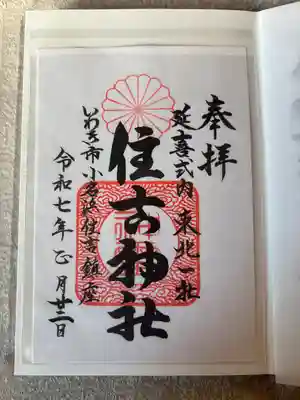 奉拝
延喜式内 東北一社
住吉神社
いわき市小名浜住吉鎮座
令和七年乙月廿二日